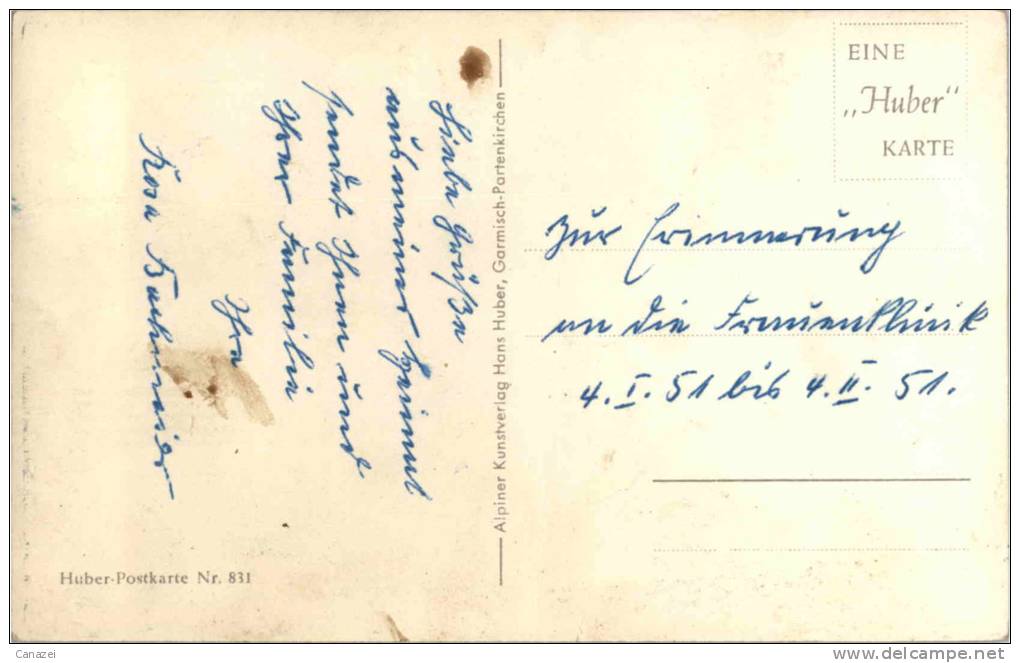 Liebe Grüße
aus meiner Heimat
sendet Ihnen und
Ihrer Familie
Ihre
Rosa
Alpiner Kunstverlag Hans Huber, Garmisch-Partenkirchen
EINE
„Huber"
KARTE
Zur Erinnerung
an die Frauenklinik
4. I. 51 bis 4. II. 51.
Huber-Postkarte Nr. 831
Canazei
www.delcampe.net